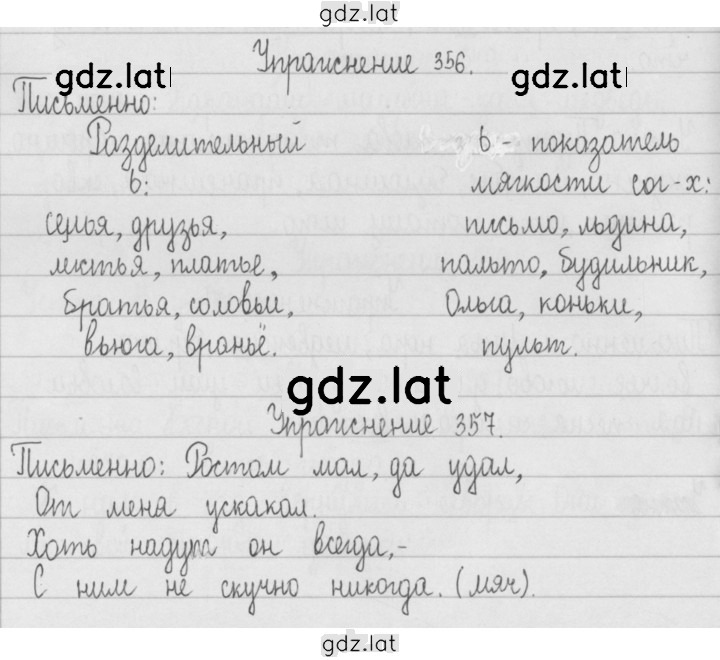 gdz.lat
Упражнение 356.
gdz.lat gdz.lat
Письменно:
Разделительный ь - показатель
ь: мягкости сог-х:
семья, друзья, письмо, льдина,
листья, платье, пальто, будильник,
братья, соловьи, Ольга, коньки,
вьюга, враньё. пульт.
gdz.lat
Упражнение 357.
Письменно: Ростом мал, да удал,
От меня ускакал.
Хоть надут он всегда,-
С ним не скучно никогда. (мяч).
gdz.lat